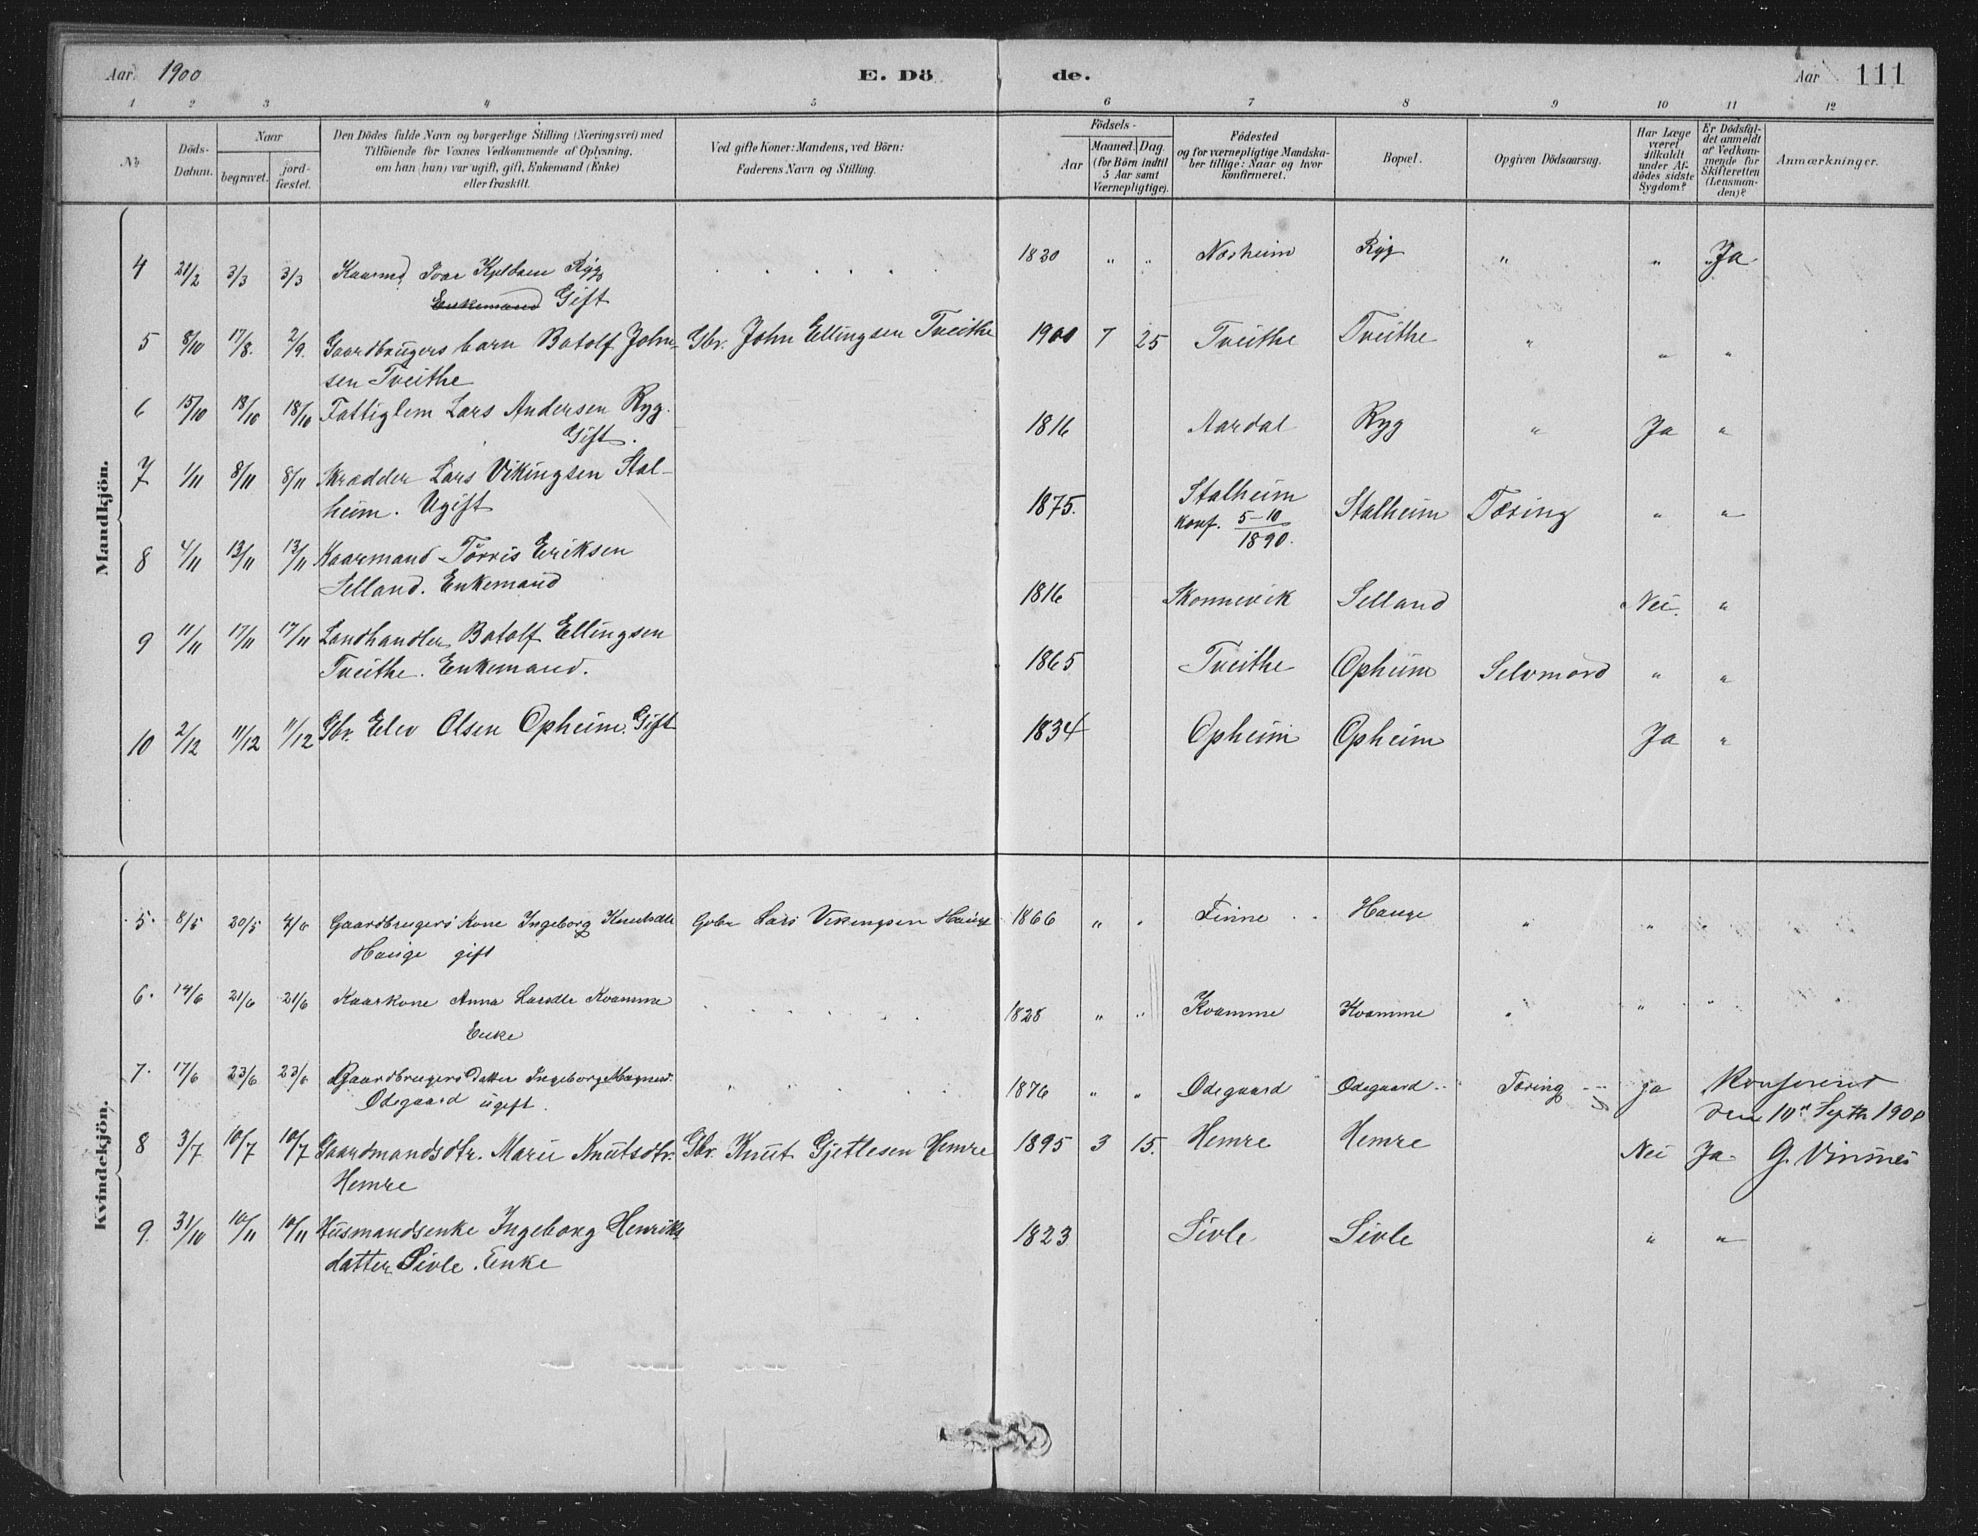 Aar 1900
E. Dö
de.
Aar 111
1 2 3 4 5 6 7 8 9 10 11 12
No
Döds-
Datum.
Naar
begravet.
jord-
fæstet.
Den Dödes fulde Navn og borgerlige Stilling (Næringsvei) med
Tilföiende for Voxnes Vedkommende af Oplysning,
om han (hun) var ugift, gift, Enkemand (Enke)
eller fraskilt.
Ved gifte Koner: Mandens, ved Börn:
Faderens Navn og Stilling.
Födsels-
Aar
Maaned.
Dag
(for Börn indtil
5 Aar samt
Værnepligtige).
Födested
og for værnepligtige Mandska-
ber tillige: Naar og hvor
konfirmeret.
Bopæl.
Opgiven Dödsaarsag.
Har Læge
været
tilkaldt
under Af-
dödes sidste
Sygdom?
Er Dödsfal-
det anmeldt
af Vedkom-
mende for
Skifteretten
(Lensman-
den)?
Anmærkninger.
Mandkjön.
4 21/2 3/3 3/3 Kaarmd. Ivar Kjeldsen Ryg 1830 " " Nærheim Ryg " " Ja
Enkemand Gift
5 8/10 17/8. 2/9. Gaardbrugers barn Botolf John- Gbr. John Ellingsen Tveithe 1900 7 25 Tveithe Tveithe " " "
sen Tveithe
6 15/10 18/10 18/10 Fattiglem Lars Andersen Ryg. 1816 Aardal Ryg " Ja "
Gift.
7 1/11 8/11 8/11 Skrædder Lars Vikingsen Stal- 1875. Stalheim Stalheim Tæring " "
heim. Ugift konf. 5-10
1890.
8 4/11 13/11 13/11 Kaarmand Törris Eriksen
Selland. Enkemand 1816 Skonnevik Selland Nei. "
9 11/11 17/11 17/11 Landhandler Botolf Ellingsen
Tveithe. Enkemand. 1865 Tveithe Opheim Selvmord " "
10 2/12 11/12 11/12 Gbr. Elev Olsen Opheim. Gift 1834 Opheim Opheim Ja "
Kvindekjön.
5. 8/5 20/5 4/6 Gaardbrugers kone Ingeborg Knutsdtr Gbr Lars Vikingsen Hauge 1866 " " Finne Hauge " "
Hauge gift
6. 14/6 21/6 21/6 Kaarkone Anna Larsdtr Kvamme 1828 " " Kvamme Kvamme " " "
Enke
7. 17/6 23/6 23/6 Gaardbrugers datter Ingeborg Magnesd. 1876 " " Ödegaard Ödegaard Tæring ja Konfereret
Ödegaard ugift. den 10de Septbr 1900
8 3/7 10/7 10/7 Gaardmandsdtr. Mari Knutsdtr. Gbr. Knut Gjetlesen Hemre 1895 3 15. Hemre Hemre Nei Ja G. Vinsnes
Hemre
9. 31/10 10/11 10/11 Husmandsenke Ingeborg Henriks 1823 Sivle Sivle " "
datter Sivle. Enke